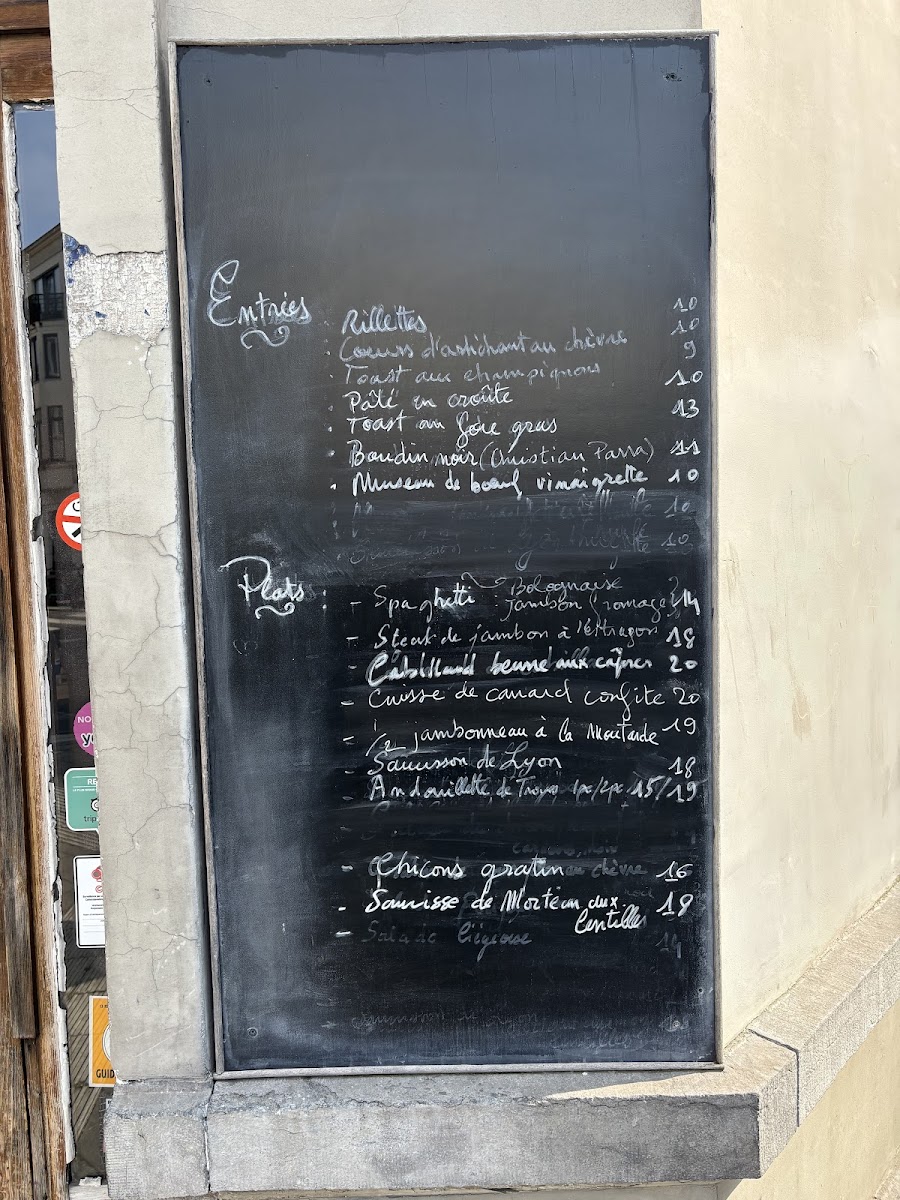 Entrées
Rillettes 10
Coeurs d'artichaut au chèvre 10
Toast aux champignons 9
Pâté en croûte 10
Toast au foie gras 13
Boudin noir (Christian Parra) 11
Museau de boeuf vinaigrette 10
10
10
Plats
Bolognaise
- Spaghetti : Jambon fromage 14
- Steak de jambon à l'estragon 18
- Cabillaud beurre aux câpres 20
- Cuisse de canard confite 20
- 1/2 jambonneau à la Moutarde 19
- Saucisson de Lyon 18
- Andouillette de Troyes 1pc/2pc 15/19
- Chicons gratin 16
- Saucisse de Morteau aux 18
Lentilles
- Salade liégeoise 14
NO
GUID